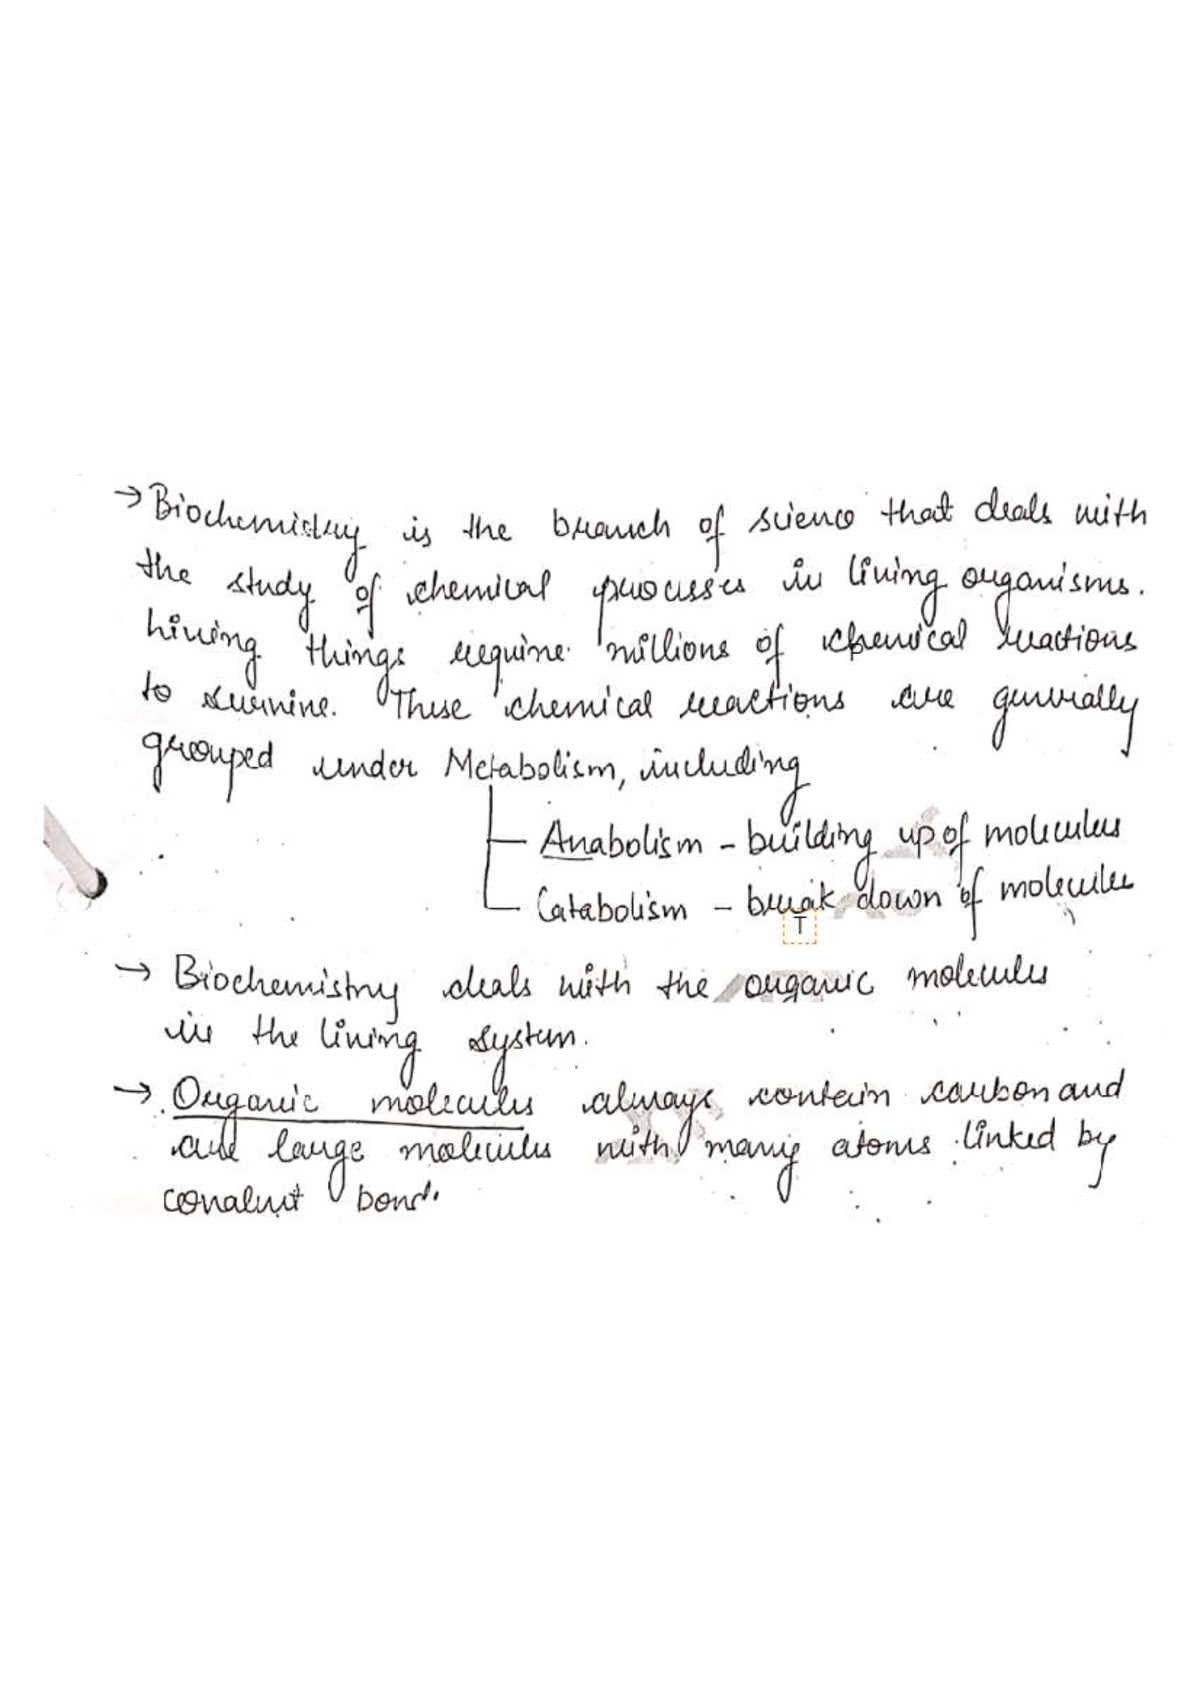 → Biochemistry is the branch of science that deals with
the study of chemical processes in living organisms.
Living things require millions of chemical reactions
to survive. These chemical reactions are generally
grouped under Metabolism, including
Anabolism - building up of molecules
Catabolism - break down of molecules
T
→ Biochemistry deals with the organic molecules
in the living system.
→ Organic molecules always contain carbon and
are large molecules with many atoms linked by
covalent bond.